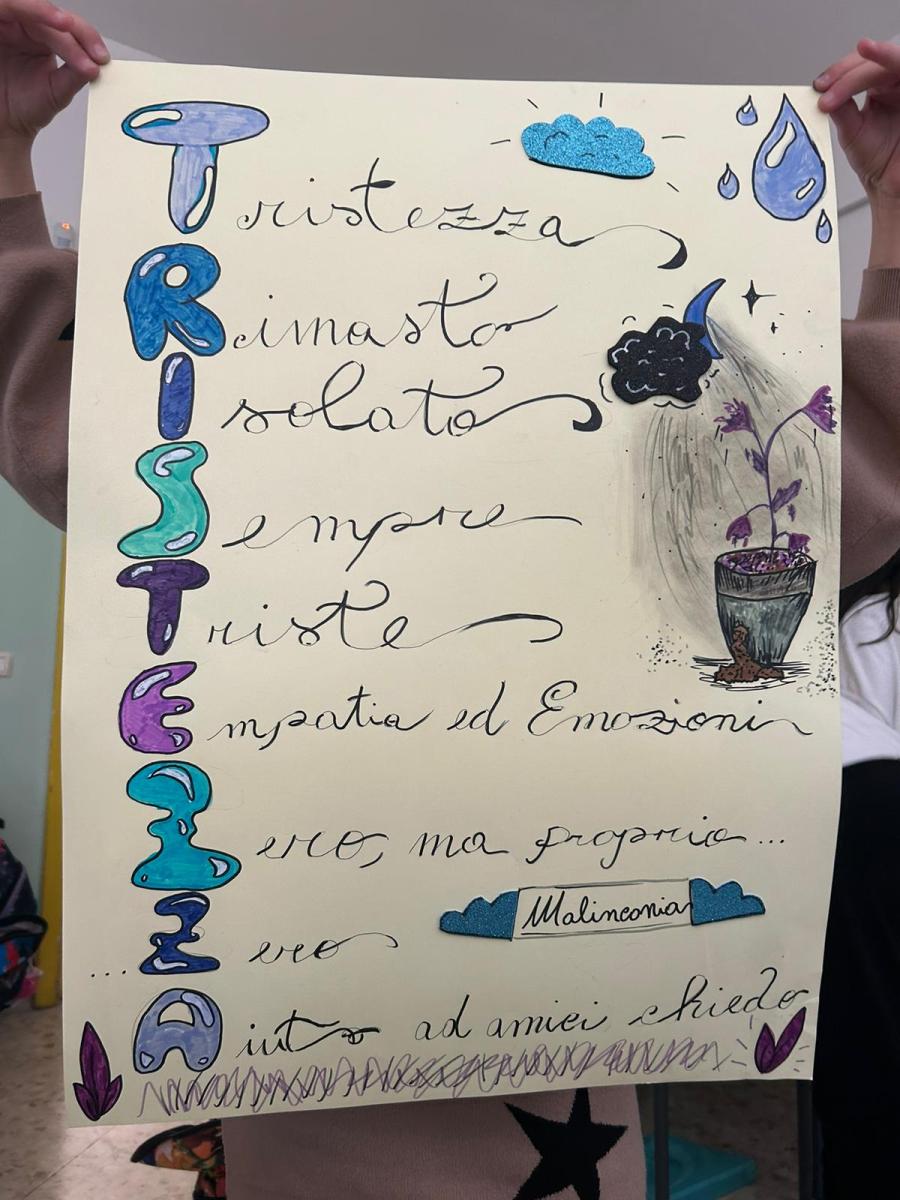 Tristezza
Rimasto
Isolato
Sempre
Triste
Empatia ed Emozioni
Zero, ma proprio...
Malinconia
...Zero
Aiuto ad amici chiedo